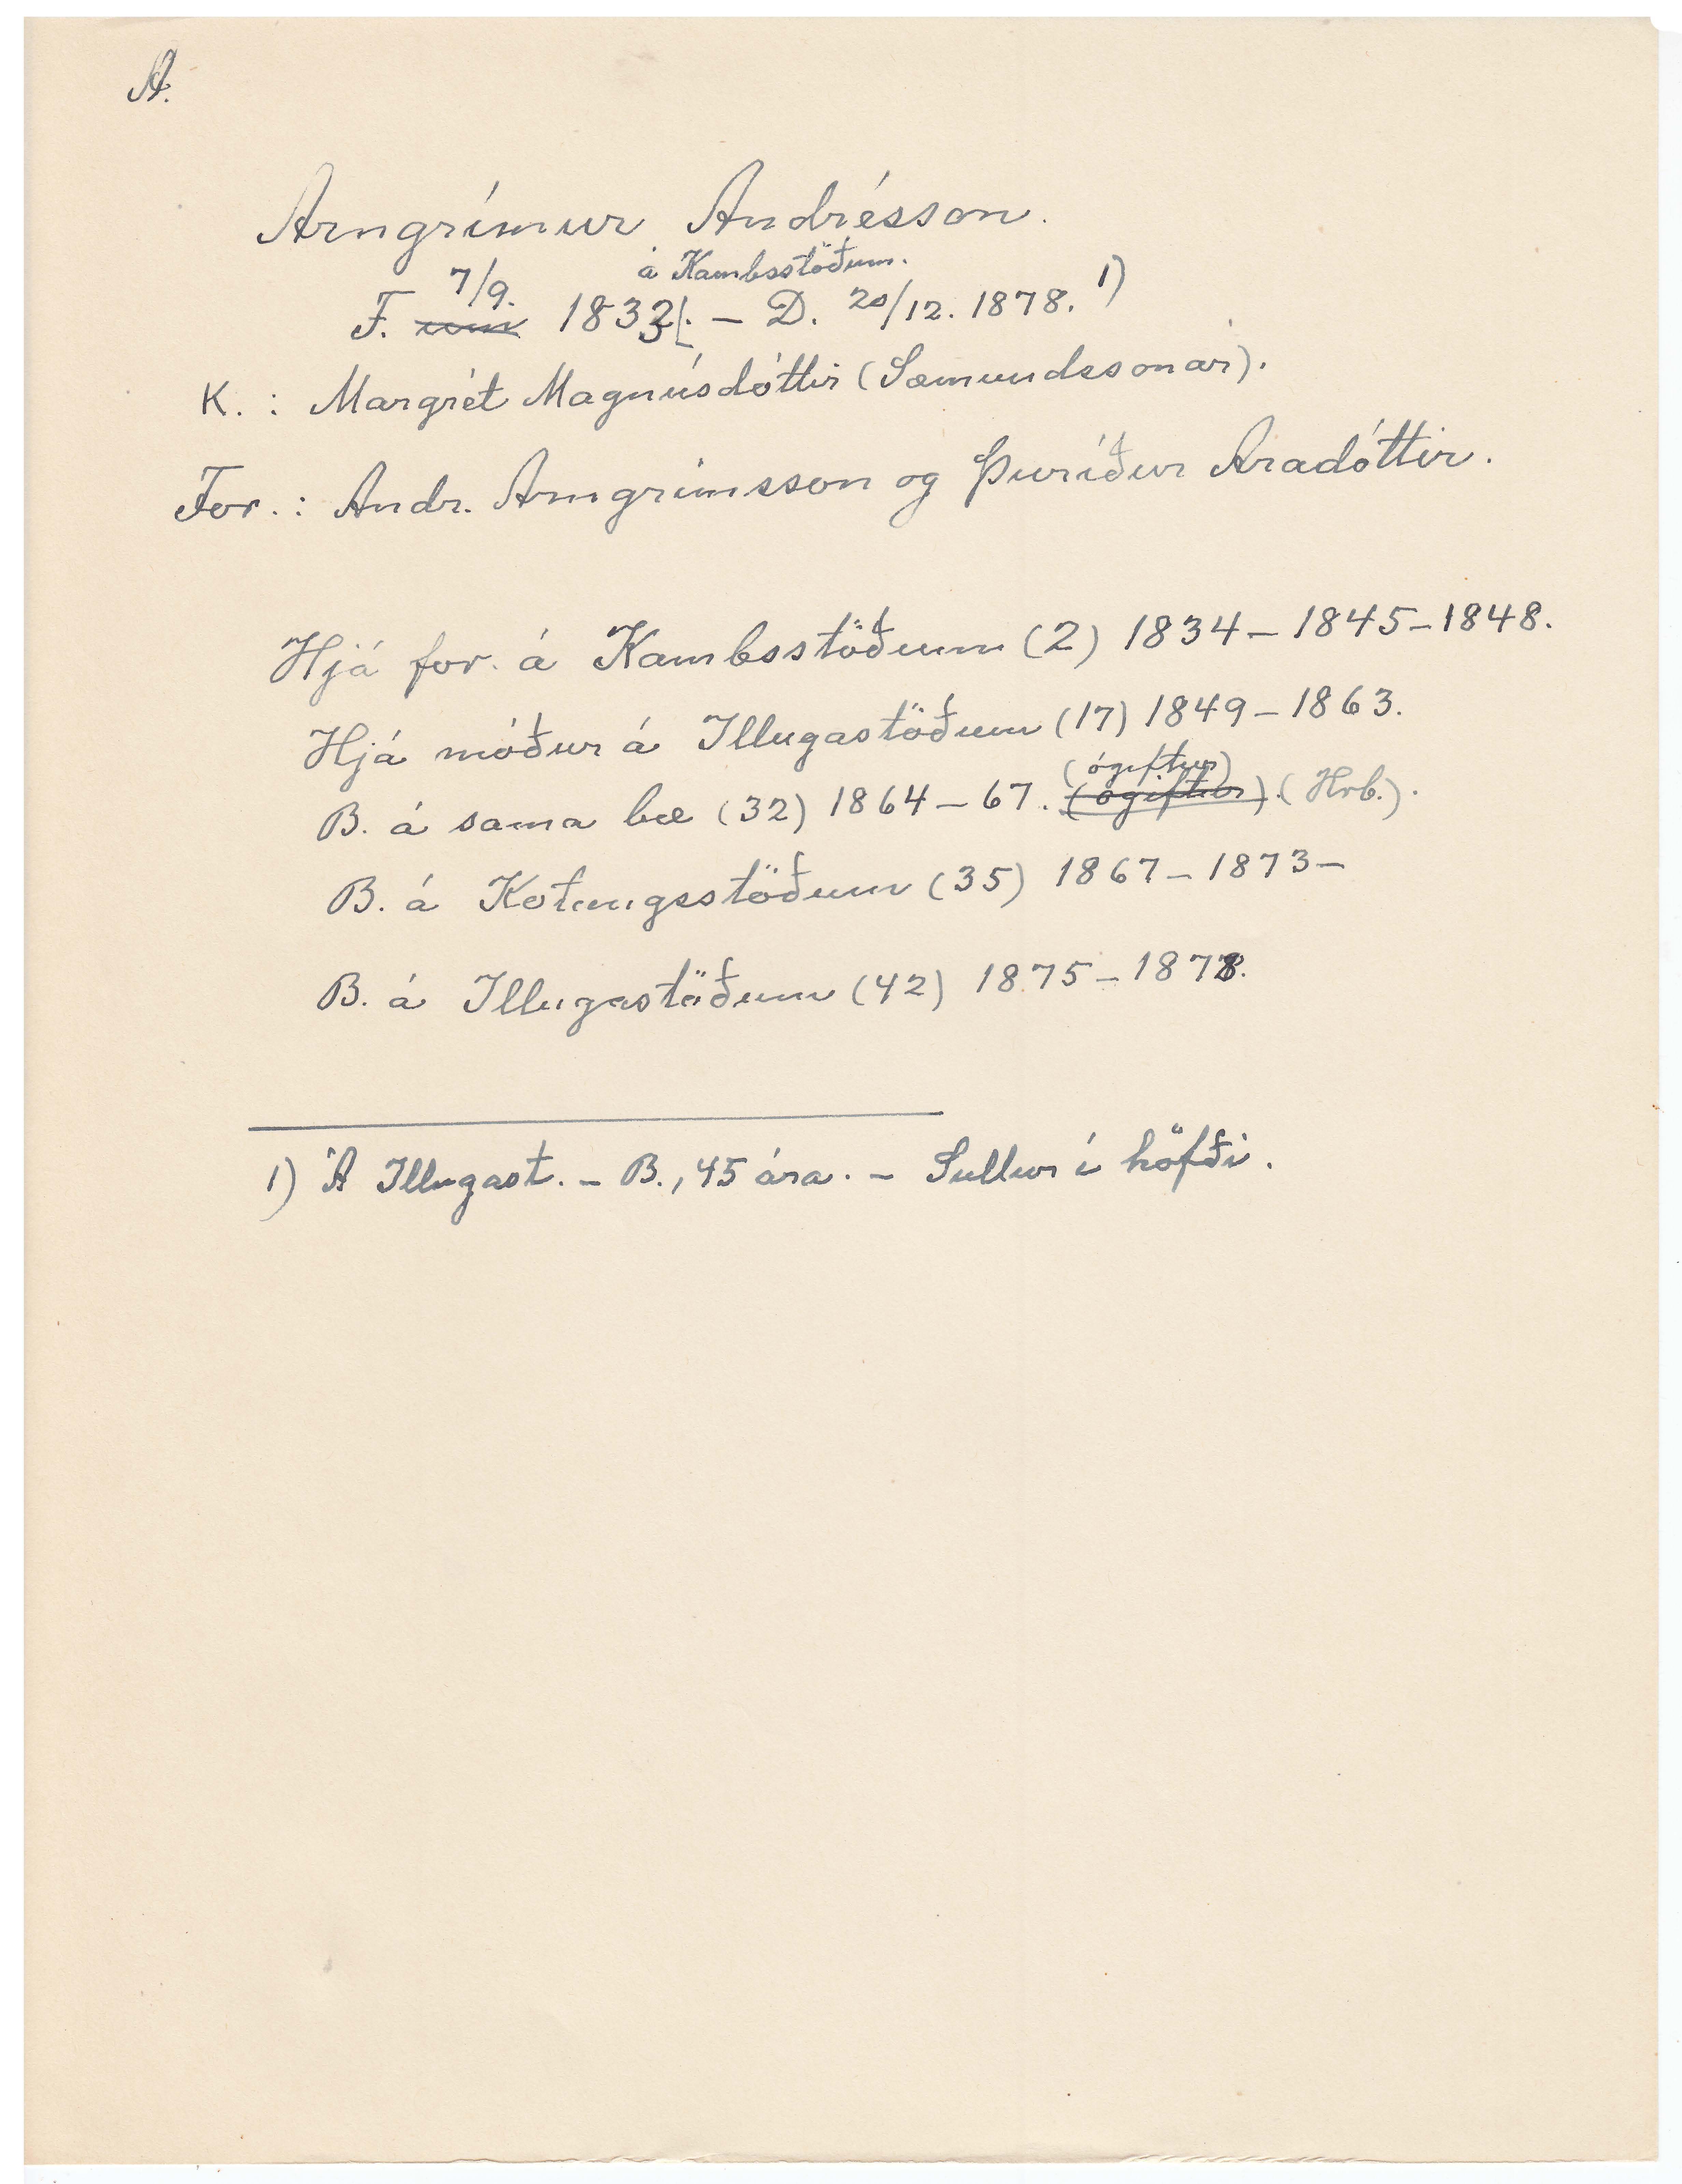 A.
Arngrímur Andrésson.
á Kambsstöðum.
F. 7/9. 1833. – D. 20/12. 1878. 1)
K. : Margrét Magnúsdóttir (Sæmundssonar).
For. : Andr. Arngrímsson og Þuríður Aradóttir.
Hjá for. á Kambsstöðum (2) 1834 – 1845 – 1848.
Hjá móður á Illugastöðum (17) 1849 – 1863.
(ógiftur)
B. á sama bæ (32) 1864 – 67. (ógiftur). (Hrb.).
B. á Kotungsstöðum (35) 1867 – 1873 –
B. á Illugastöðum (42) 1875 – 1878.
1) Á Illugast. – B., 45 ára. – Sullur í höfði.